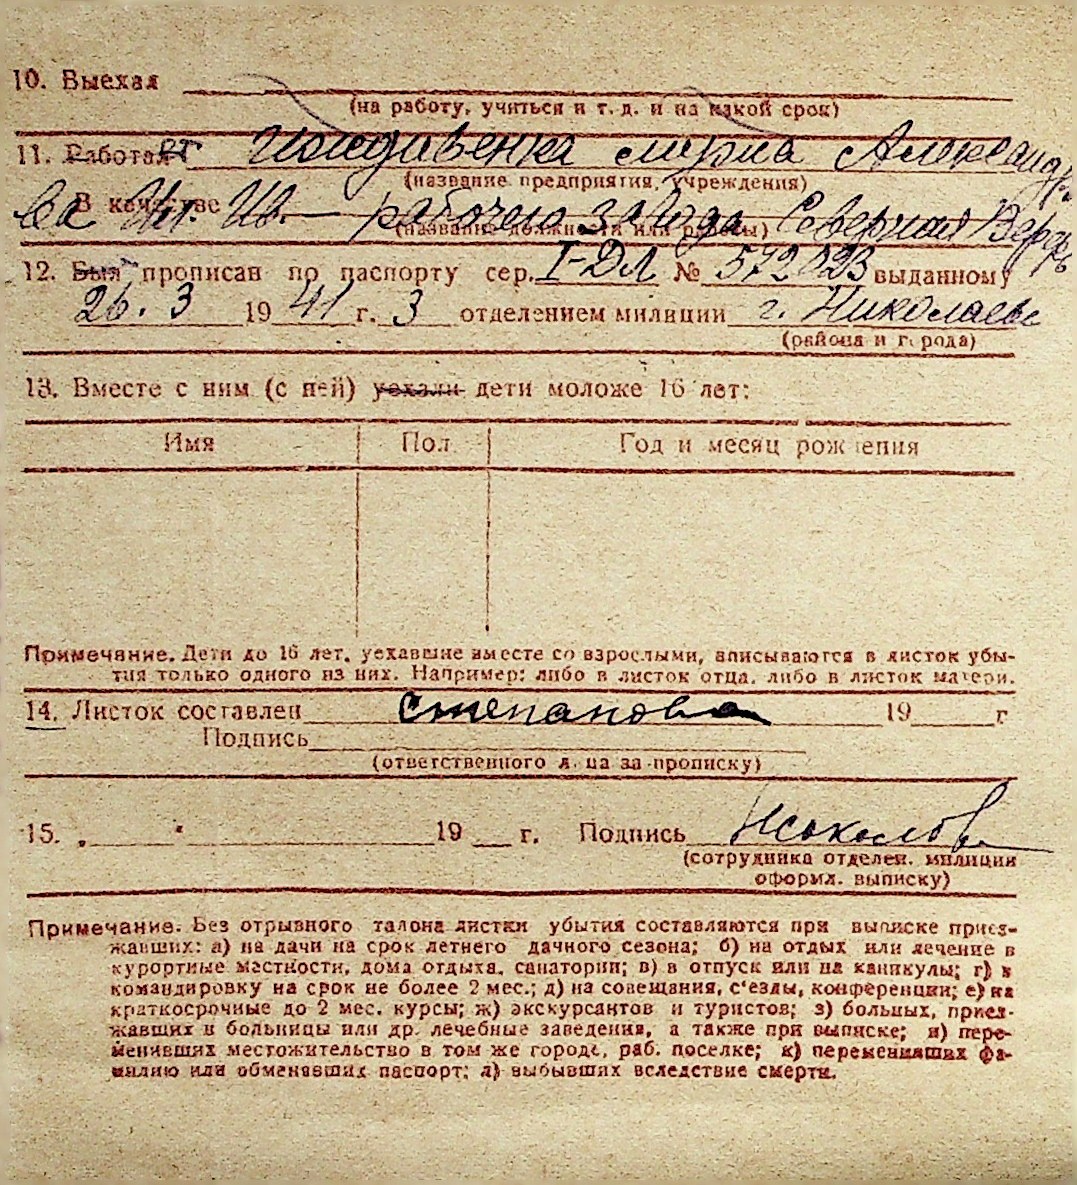 10. Выехал
(на работу, учиться и т. д. и на какой срок)
11. Работает Александр
(название предприятия, учреждения)
В качестве Ив. — рабочего завода Северная Верфь
(название должности или работы)
12. Был прописан по паспорту сер. I-ДЛ № 572023 выданному
26. 3 1941 г. 3 отделением милиции г. Николаев
(района и города)
13. Вместе с ним (с ней) уехали дети моложе 16 лет:
Имя Пол Год и месяц рождения
Примечание. Дети до 16 лет, уехавшие вместе со взрослыми, вписываются в листок убы-
тия только одного из них. Например: либо в листок отца, либо в листок матери.
14. Листок составлен Степанова 19 г
Подпись
(ответственного лица за прописку)
15. „ " 19 г. Подпись Соколов
(сотрудника отделен. милиции
оформл. выписку)
Примечание. Без отрывного талона листки убытия составляются при выписке приез-
жавших: а) на дачи на срок летнего дачного сезона; б) на отдых или лечение в
курортные местности, дома отдыха, санатории; в) в отпуск или на каникулы; г) в
командировку на срок не более 2 мес.; д) на совещания, с'езды, конференции; е) на
краткосрочные до 2 мес. курсы; ж) экскурсантов и туристов; з) больных, приез-
жавших в больницы или др. лечебные заведения, а также при выписке; и) пере-
менивших местожительство в том же городе, раб. поселке; к) переменивших фа-
милию или обменявших паспорт; л) выбывших вследствие смерти.